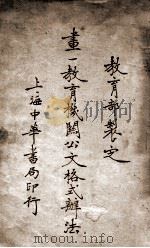 教育部製定
畫一教育機關公文格式辦法
上海中華書局印行
mtoou.info